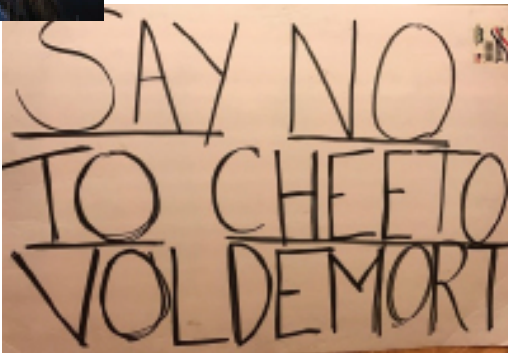 SAY NO
TO CHEETO
VOLDEMORT